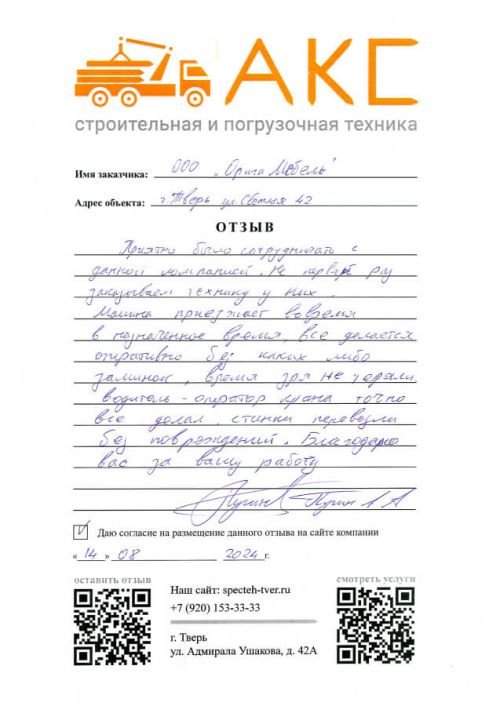 АКС
строительная и погрузочная техника
Имя заказчика: ООО "Орига Мебель"
Адрес объекта: г. Тверь ул. Светлая 42
ОТЗЫВ
Приятно было сотрудничать с
данной компанией. Не первый раз
заказываем технику у них.
Машина приезжает вовремя
в назначенное время, все делается
оперативно без каких либо
заминок, время зря не теряли
водитель-оператор крана точно
все делал, станки перевезли
без повреждений. Благодарю
вас за вашу работу
Даю согласие на размещение данного отзыва на сайте компании
«14» 08 2024 г.
оставить отзыв
смотреть услуги
Наш сайт: specteh-tver.ru
+7 (920) 153-33-33
г. Тверь
ул. Адмирала Ушакова, д. 42А